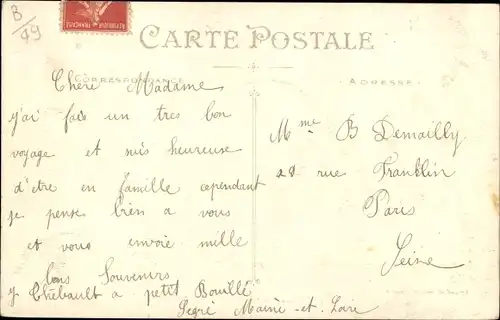 B/49
RÉPUBLIQUE FRANÇAISE
CARTE POSTALE
CORRESPONDANCE
ADRESSE
Chère Madame
j'ai fais un tres bon
voyage et suis heureuse
d'etre en famille cependant
je pense bien a vous
et vous envoie mille
bons Souvenirs
y Thébault a petit Bouillé
Segré Maine-et-Loire
Mme B Demailly
28 rue Franklin
Paris
Seine